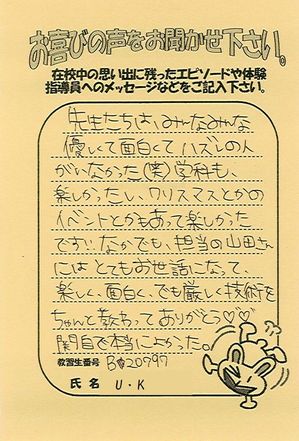 お喜びの声をお聞かせ下さい。
在校中の思い出に残ったエピソードや体験
指導員へのメッセージなどをご記入下さい。
先生たちは、みんなみんな
優しくて面白くてハズレの人
がいなかった(笑)学科も、
楽しかったし、クリスマスとかの
イベントとかもあって楽しかった
です!!なかでも、担当の山田さん
にはとてもお世話になって、
楽しく、面白く、でも厳しく技術を
ちゃんと教わってありがとう♡♡
関自で本当によかった。
教習生番号 B020797
氏名 U・K